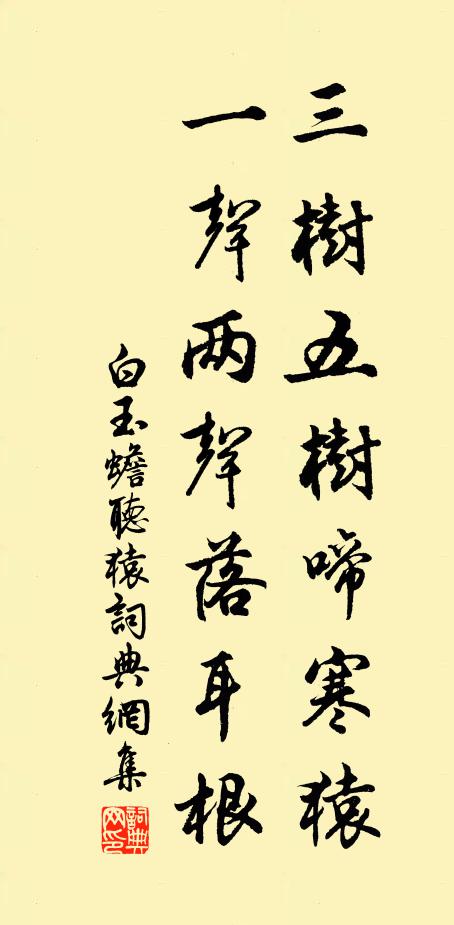 三樹五樹啼寒猿
一聲两聲落耳根
白玉蟾聽猿詞典網集
詞典
网印